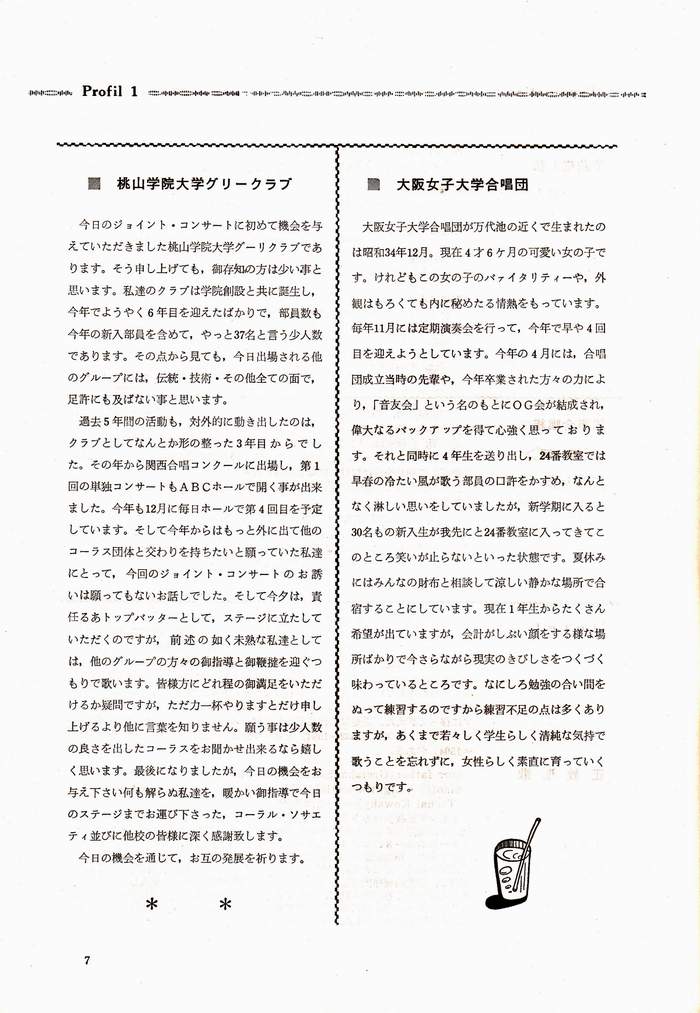 Profil 1
桃山学院大学グリークラブ
今日のジョイント・コンサートに初めて機会を与
えていただきました桃山学院大学グーリクラブであ
ります。そう申し上げても，御存知の方は少い事と
思います。私達のクラブは学院創設と共に誕生し，
今年でようやく6年目を迎えたばかりで，部員数も
今年の新入部員を含めて，やっと37名と言う少人数
であります。その点から見ても，今日出場される他
のグループには，伝統・技術・その他全ての面で，
足許にも及ばない事と思います。
過去5年間の活動も，対外的に動き出したのは，
クラブとしてなんとか形の整った3年目からでし
た。その年から関西合唱コンクールに出場し，第1
回の単独コンサートもABCホールで開く事が出来
ました。今年も12月に毎日ホールで第4回目を予定
しています。そして今年からはもっと外に出て他の
コーラス団体と交わりを持ちたいと願っていた私達
にとって，今回のジョイント・コンサートのお誘
いは願ってもないお話しでした。そして今夕は，責
任るあトップバッターとして，ステージに立たして
いただくのですが，前述の如く未熟な私達として
は，他のグループの方々の御指導と御鞭撻を迎ぐつ
もりで歌います。皆様方にどれ程の御満足をいただ
けるか疑問ですが，ただ力一杯やりますとだけ申し
上げるより他に言葉を知りません。願う事は少人数
の良さを出したコーラスをお聞かせ出来るなら嬉し
く思います。最後になりましたが，今日の機会をお
与え下さい何も解らぬ私達を，暖かい御指導で今日
のステージまでお運び下さった，コーラル・ソサエ
ティ並びに他校の皆様に深く感謝致します。
今日の機会を通じて，お互の発展を祈ります。
＊ ＊
大阪女子大学合唱団
大阪女子大学合唱団が万代池の近くで生まれたの
は昭和34年12月。現在4才6ケ月の可愛い女の子で
す。けれどもこの女の子のバァイタリティーや，外
観はもろくても内に秘めたる情熱をもっています。
毎年11月には定期演奏会を行って，今年で早や4回
目を迎えようとしています。今年の4月には，合唱
団成立当時の先輩や，今年卒業された方々の力によ
り，「音友会」という名のもとにOG会が結成され，
偉大なるバックアップを得て心強く思っておりま
す。それと同時に4年生を送り出し，24番教室では
早春の冷たい風が歌う部員の口許をかすめ，なんと
なく淋しい思いをしていましたが，新学期に入ると
30名もの新入生が我先にと24番教室に入ってきてこ
のところ笑いが止らないといった状態です。夏休み
にはみんなの財布と相談して涼しい静かな場所で合
宿することにしています。現在1年生からたくさん
希望が出ていますが，会計がしぶい顔をする様な場
所ばかりで今さらながら現実のきびしさをつくづく
味わっているところです。なにしろ勉強の合い間を
ぬって練習するのですから練習不足の点は多くあり
ますが，あくまで若々しく学生らしく清純な気持で
歌うことを忘れずに，女性らしく素直に育っていく
つもりです。
7